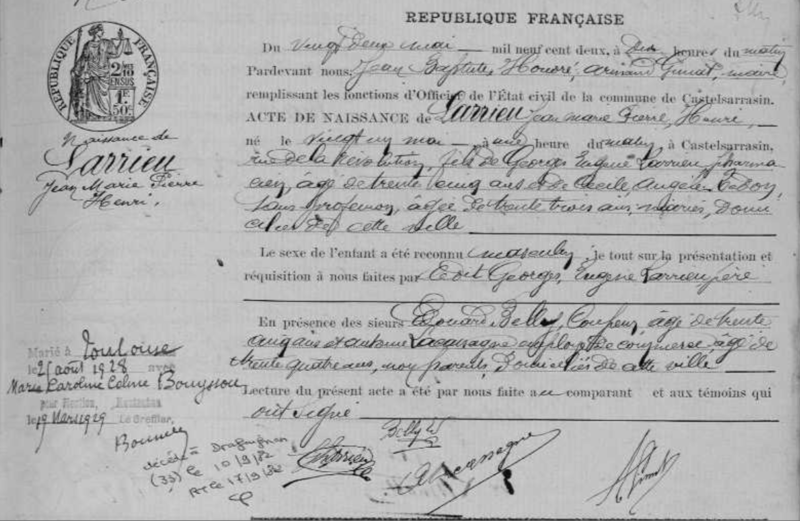 REPUBLIQUE FRANÇAISE
RÉPUBLIQUE FRANÇAISE
Du vingt deux mai mil neuf cent deux, à Dix heures du matin
Pardevant nous, Jean Baptiste Honoré Armand maire
remplissant les fonctions d'Officier de l'État civil de la commune de Castelsarrasin.
ACTE DE NAISSANCE de Larrieu Jean Marie Pierre, Henri,
né le vingt un mai à une heure du matin, à Castelsarrasin,
rue de la Révolution, fils de Georges Eugène Larrieu pharma
cien, âgé de trente cinq ans et de Cécile Angèle
sans profession, âgée de trente trois ans, mariés, Domi
ciliés de cette ville
Le sexe de l'enfant a été reconnu masculin; le tout sur la présentation et
réquisition à nous faites par le dit Georges, Eugène Larrieu père
En présence des sieurs Edouard Belly, Coupeur, âgé de trente
cinq ans et Antoine Lacassagne employé de commerce âgé de
trente quatre ans, non parents, Domiciliés de cette ville
Lecture du présent acte a été par nous faite au comparant et aux témoins qui
ont signé
Belly
Larrieu
Lacassagne
Naissance de
Larrieu
Jean Marie Pierre
Henri.
Marié à Toulouse
le 25 août 1928 avec
Marie Caroline Céline Bouyssou
le 19 Mars 1929 Le Greffier,
décédé à Draguignan
le 10/9/82
le 17/9/82